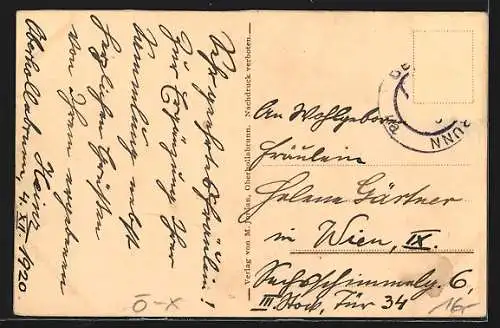 Sehr geehrtes Fräulein!
Zur Ergänzung Ihrer
Sammlung nebst
herzlichen Grüßen
von Ihrem ergebenen
Heinz
Oberhollabrunn, 4. XII. 1920
Verlag von M. Jordan, Oberhollabrunn. Nachdruck verboten.
An Wohlgeboren
Fräulein
Helene Gärtner
in Wien, IX.
Sechsschimmelg. 6,
III. Stock, Tür 34
RUNN
O-X
16,-